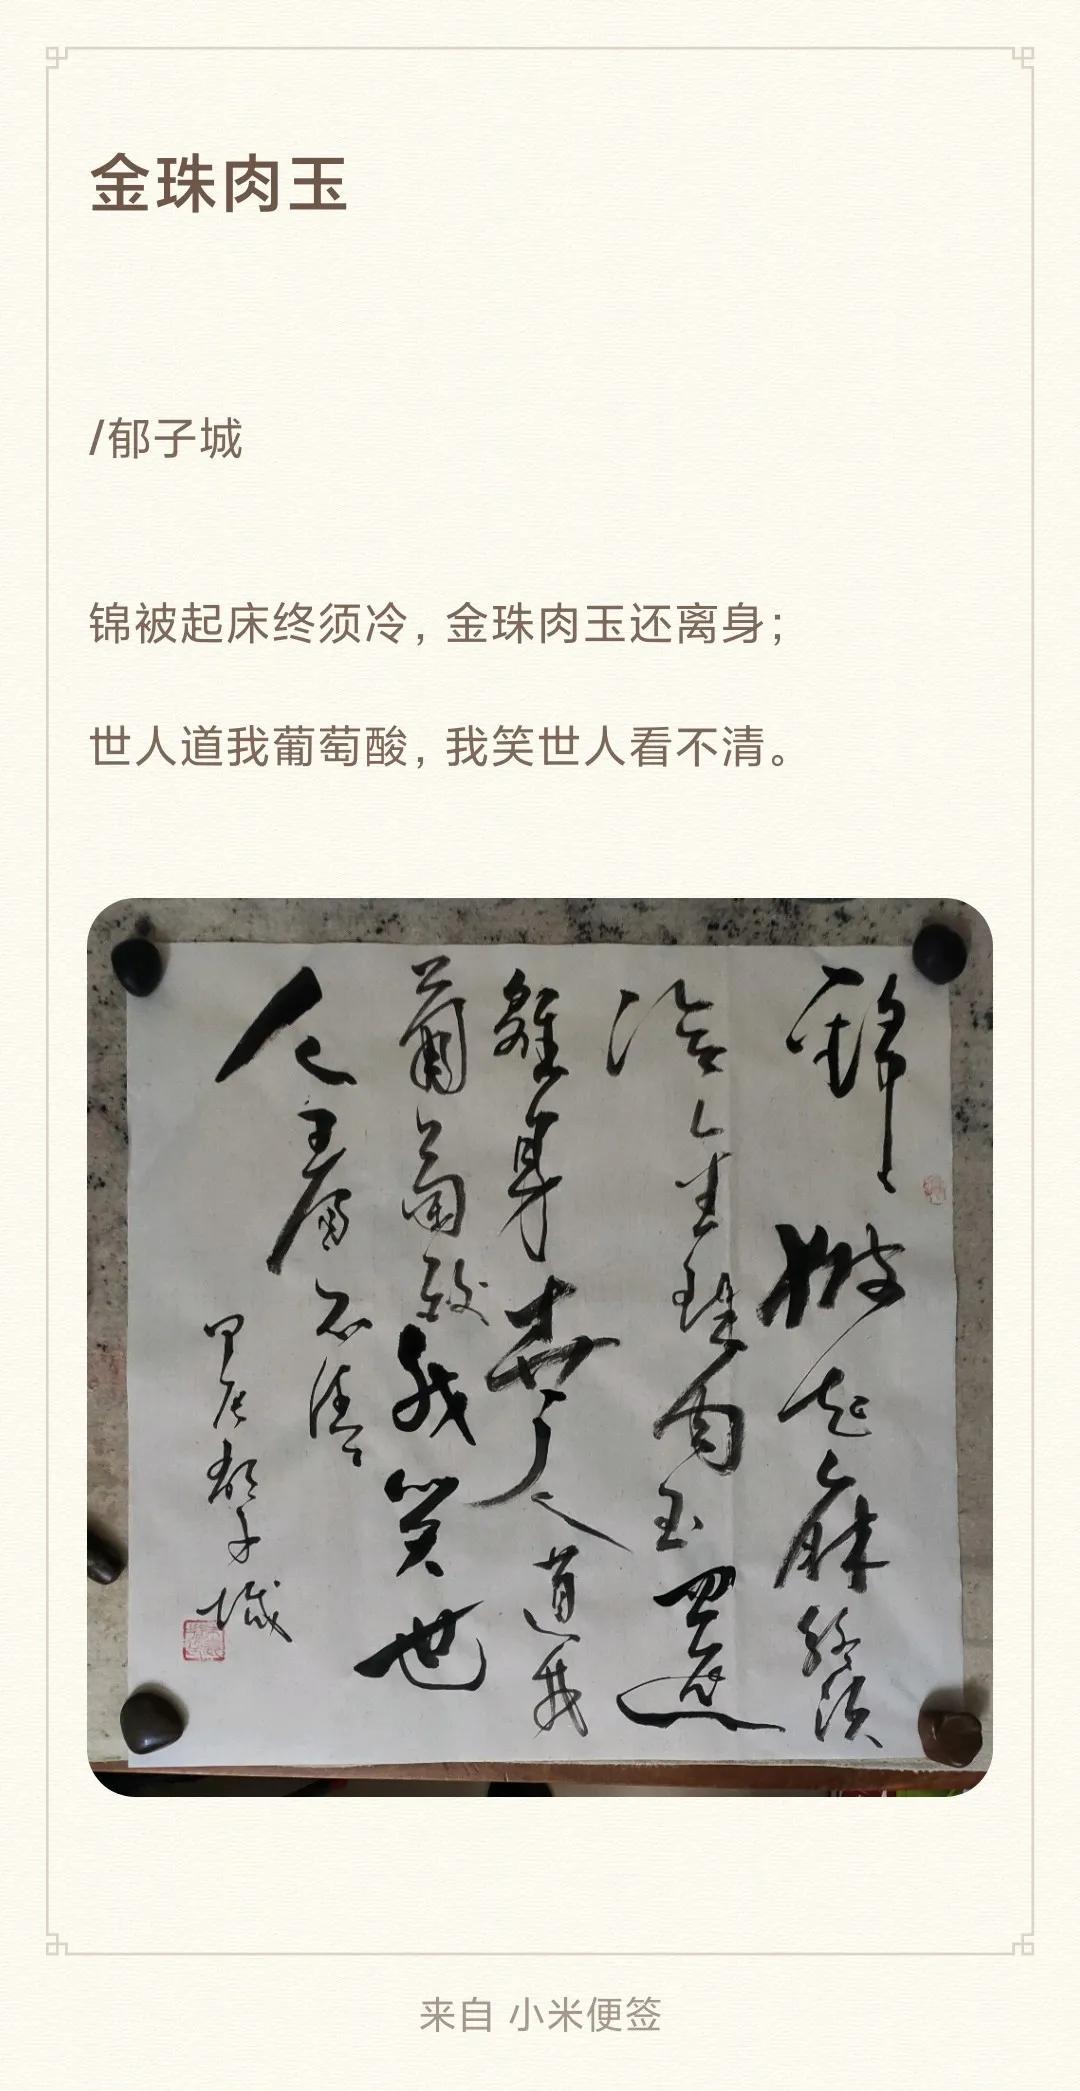 金珠肉玉
/郁子城
锦被起床终须冷，金珠肉玉还离身；
世人道我葡萄酸，我笑世人看不清。
錦被起床終須
冷金珠肉玉還
離身世人道我
葡萄酸我笑世
人看不清
甲辰郁子城
来自 小米便签